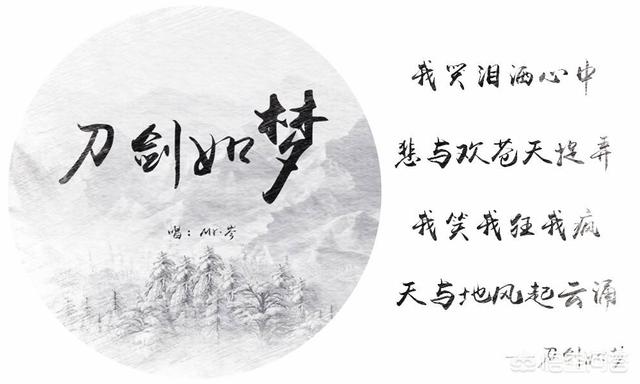 刀剑如梦
唱：Mr·岑
我哭泪洒心中
悲与欢苍天捉弄
我笑我狂我疯
天与地风起云涌
—刀剑如梦